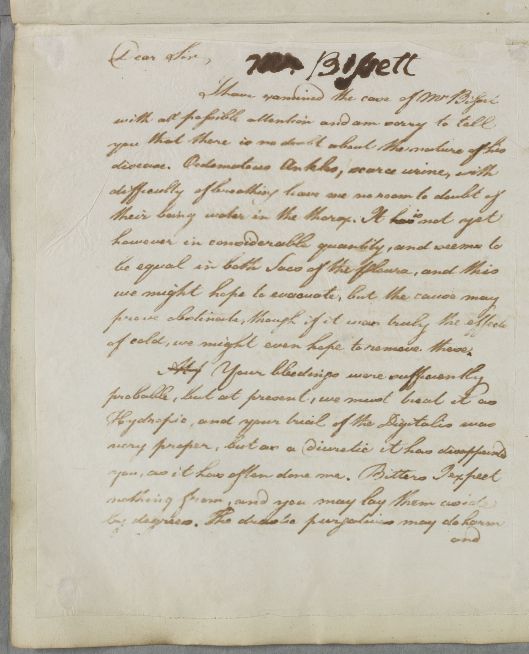 Dear Sir,
Mr Bissett
I have examined the case of Mr Bisset
with all possible attention and am sorry to tell
you that there is no doubt about the nature of his
disease. Oedematous Ankles, scarce urine, with
difficulty of breathing leave me no room to doubt of
their being water in the thorax. It is not yet
however in considerable quantity, and seems to
be equal in both Sacs of the Pleura, and this
we might hope to evacuate, but the cause may
prove obstinate, though if it was truly the effects
of cold, we might even hope to remove these.
Your bleedings were sufficiently
probable, but at present, we must treat it as
Hydropic, and your trial of the Digitalis was
very proper, but as a diuretic it has disappointd
you, as it has often done me. Bitters I expect
nothing from, and you may lay them aside
by degrees. The drastic purgatives may do harm
and